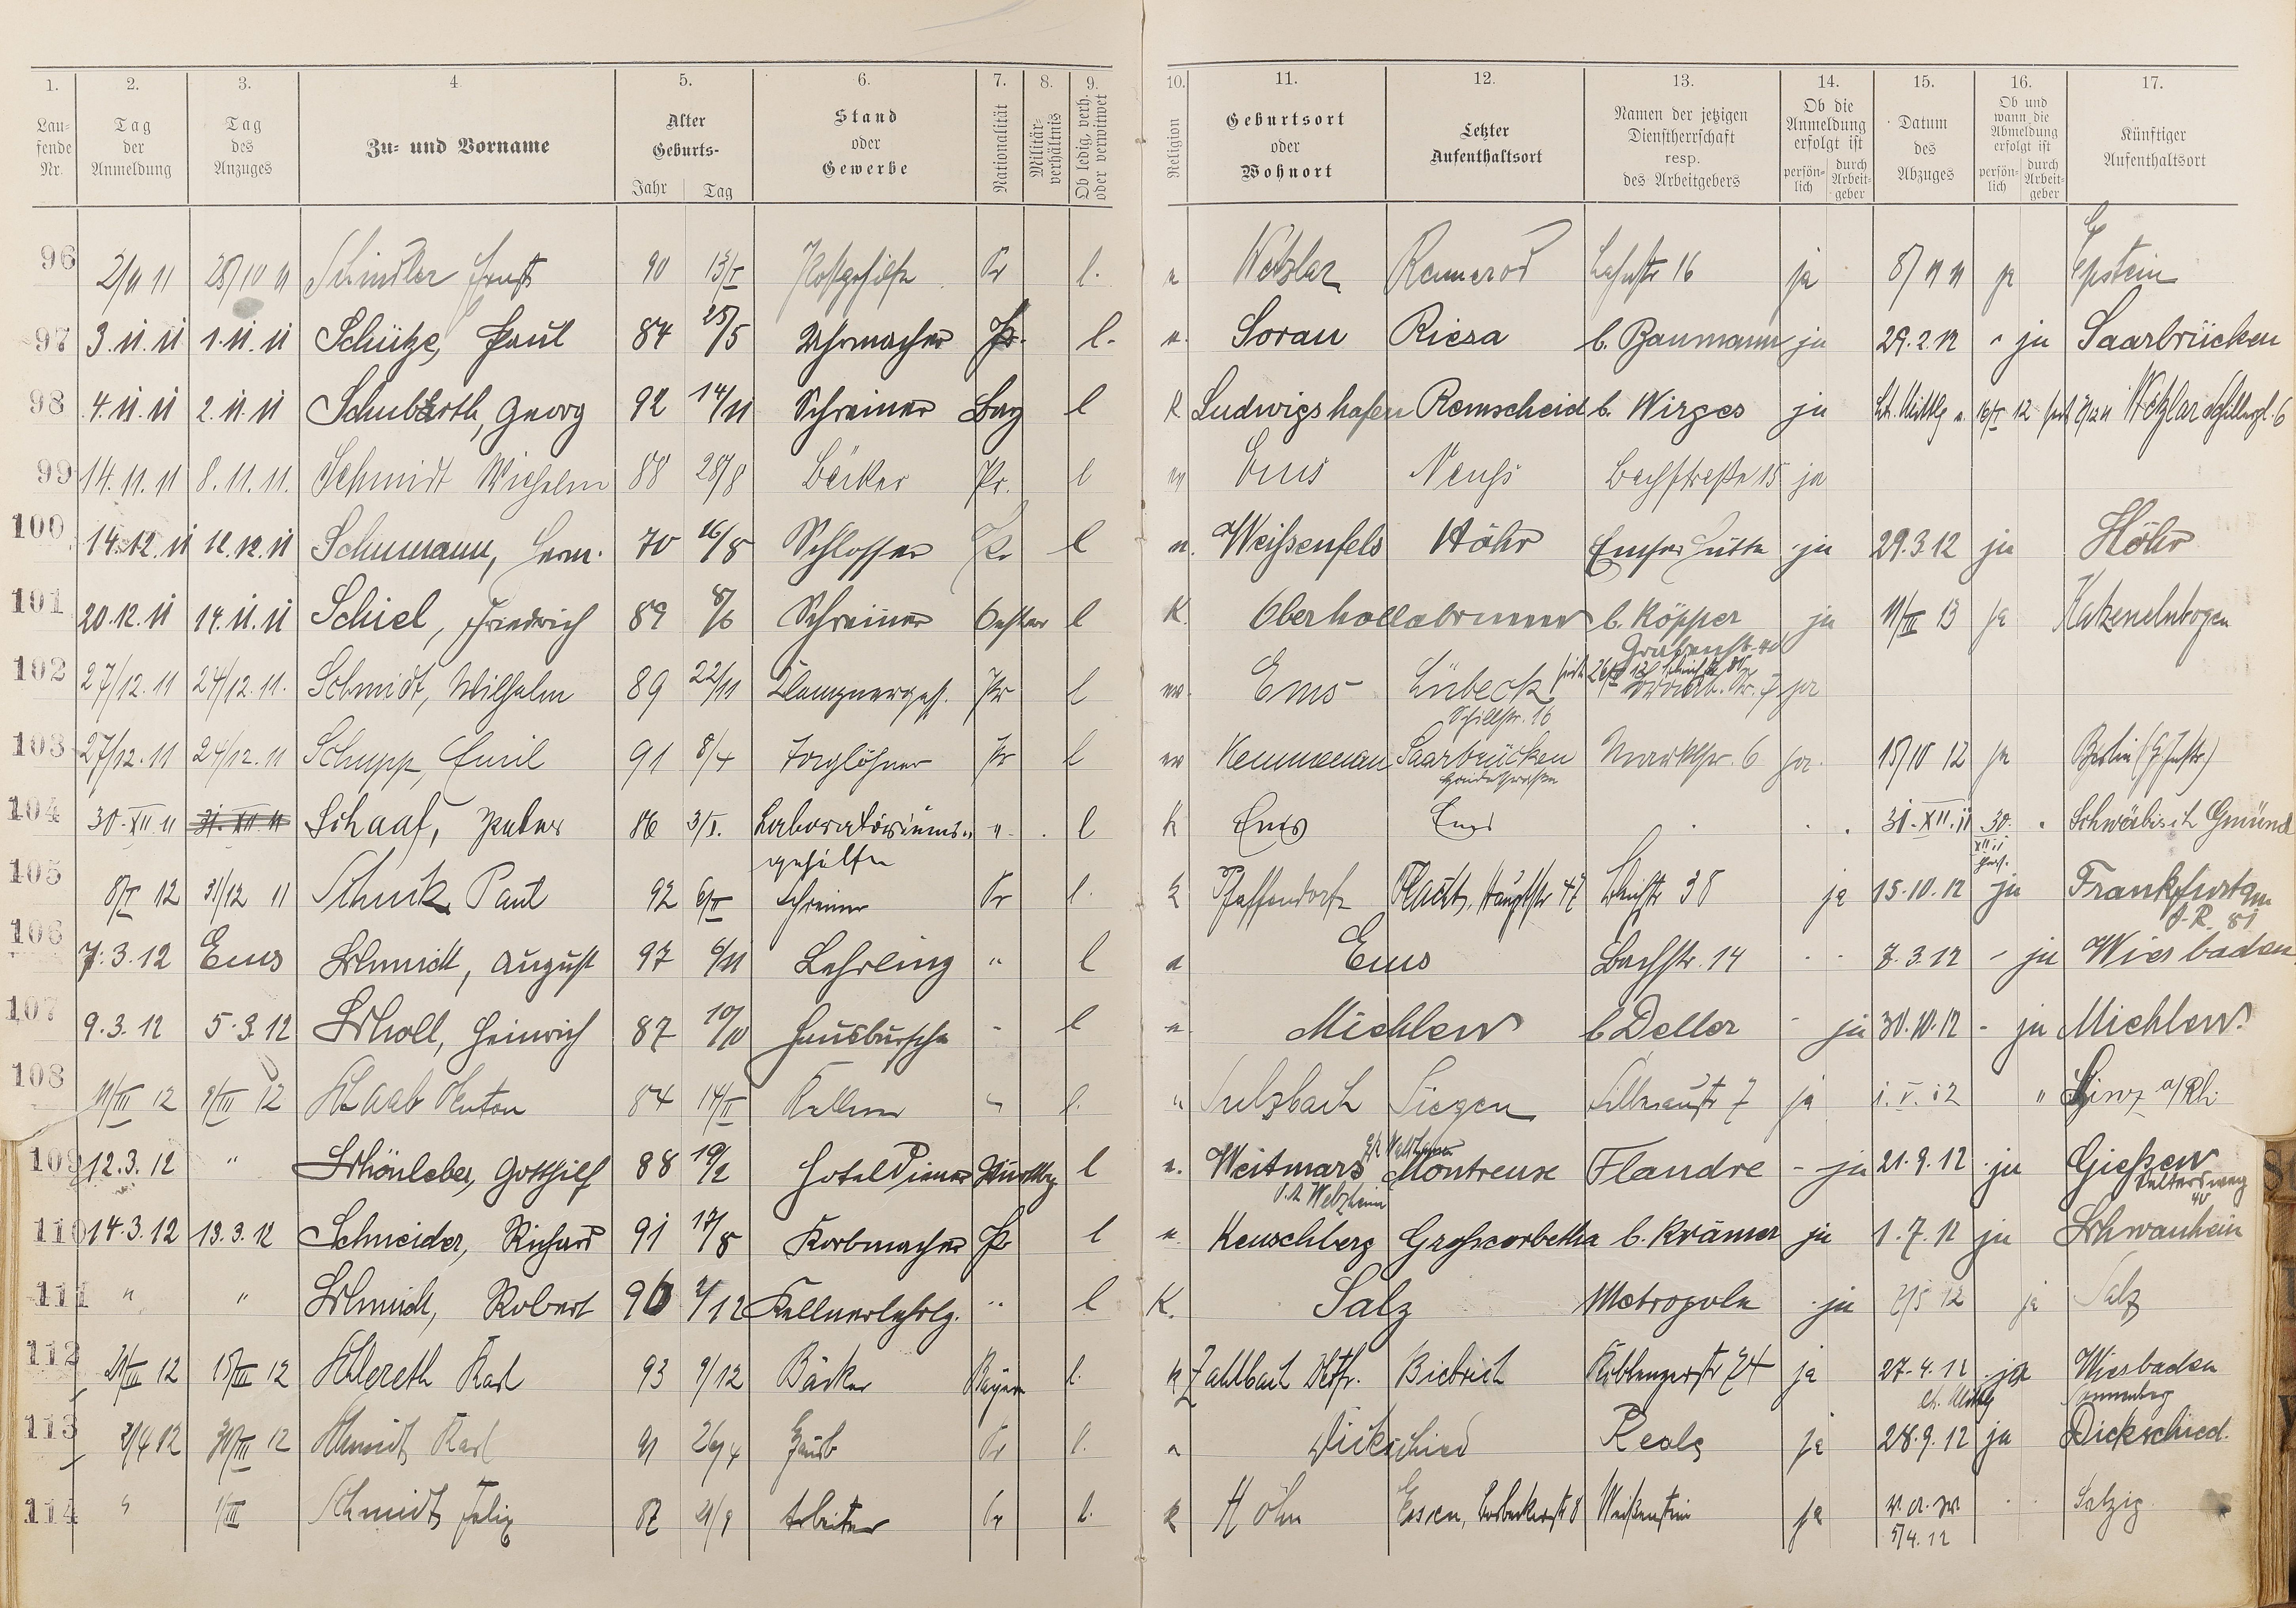 1. 2. 3. 4 5. 6. 7. 8. 9. 10. 11. 12. 13. 14. 15. 16. 17.
Laufende Nr. Tag der Anmeldung Tag des Anzuges Zu- und Vorname Alter Geburts- Jahr Tag Stand oder Gewerbe Nationalität Militärverhältnis Ob ledig, verh. oder verwitwet Religion Geburtsort oder Wohnort Letzter Aufenthaltsort Namen der jetzigen Dienstherrschaft resp. des Arbeitgebers Ob die Anmeldung erfolgt ist persönlich durch Arbeitgeber Datum des Abzuges Ob und wann die Abmeldung erfolgt ist persönlich durch Arbeitgeber Künftiger Aufenthaltsort
96 2/11 11 28/10 11 Schindler Ernst 90 13/I Postgehilfe Pr l. Wetzlar Rennerod Lahnstr 16 ja 8/11 11 ja Epstein
97 3.11.11 1.11.11 Schütze, Paul 84 25/5 Uhrmacher Pr. l. Sorau Riesa b. Baumann ja 29.2.12 " ja Saarbrücken
98 4.11.11 2.11.11 Schuberth, Georg 92 14/11 Schreiner Bay l K Ludwigshafen Remscheid b. Wirges ja 12 Wetzlar 6
99 14.11.11 8.11.11. Schmidt Wilhelm 88 28/8 Bäcker Pr. l Ems Neuß Bachstraße 15 ja
100 14.12.11 12.12.11 Schumann, Herm. 70 16/8 Schlosser Pr l Weißenfels Höhr Emser Hütte ja 29.3.12 ja Höhr
101 20.12.11 14.11.11 Schiel, Friedrich 89 8/6 Schreiner Oester l K. Oberhollabrunn b. Köpper ja 11/III 13 ja Katzenelnbogen
102 27/12.11 24/12.11. Schmidt, Wilhelm 89 22/11 Klempnergeh. Pr l Ems Lübeck ja
Schillstr. 16
103 27/12.11 24/12.11 Schupp, Emil 91 8/4 Taglöhner Pr l Kemmenau Saarbrücken Marktstr. 6 ja. 15/10 12 ja Berlin
104 30.XII.11 31.XII.11 Schaaf, Peter 86 3/I. Laboratoriums- " l K Ems Ems 31.XII.11 30. Schwäbisch Gmünd
gehilfe XII 11
105 8/I 12 31/12 11 Schuck Paul 92 Schreiner Pr l. K Pfaffendorf Hauptstr 47 38 ja 15.10.12 ja Frankfurt a/m
106 7.3.12 Ems Schmidt, August 97 6/11 Lehrling " l Ems Bachstr. 14 7.3.12 - ja Wiesbaden
107 9.3.12 5.3.12 Scholl, Heinrich 87 10/10 Hausbursche - l Miehlen b Deller - ja 30.10.12 - ja Miehlen
108 11/III 12 9/III 12 Schaab Anton 84 14/II Kellner " l. " Sulzbach Siegen 7 ja 1.V.12 " Linz a/Rh.
109 12.3.12 " Schönleber, Gotthilf 88 19/2 Hoteldiener Württbg l Weitmars Montreux Flandre - ja 21.9.12 ja Gießen
O.A. Welzheim Seltersweg 40
110 14.3.12 13.3.12 Schneider, Richard 91 17/8 Korbmacher Pr l Keuschberg Großcorbetha b. Krämer ja 1.7.12 ja Schwanheim
111 " " Schmidt, Robert 96 2/12 Kellnerlehrlg. " l K. Salz Metropole ja 2/5 12 ja Salz
112 21/III 12 15/III 12 Schlereth Karl 93 9/12 Bäcker Bayern l. K Zahlbach Biebrich Koblenzerstr 74 ja 27.4.12 ja Wiesbaden
Sonnenberg
113 2/4 12 30/III 12 Schmidt Karl 91 26/4 Hausb Pr l. Dickschied Reale ja 28.9.12 ja Dickschied.
114 " 1/III Schmidt Felix 87 21/9 Arbeiter Pr l. K Höhn Essen, Weißenstein ja Salzig
5/4.12